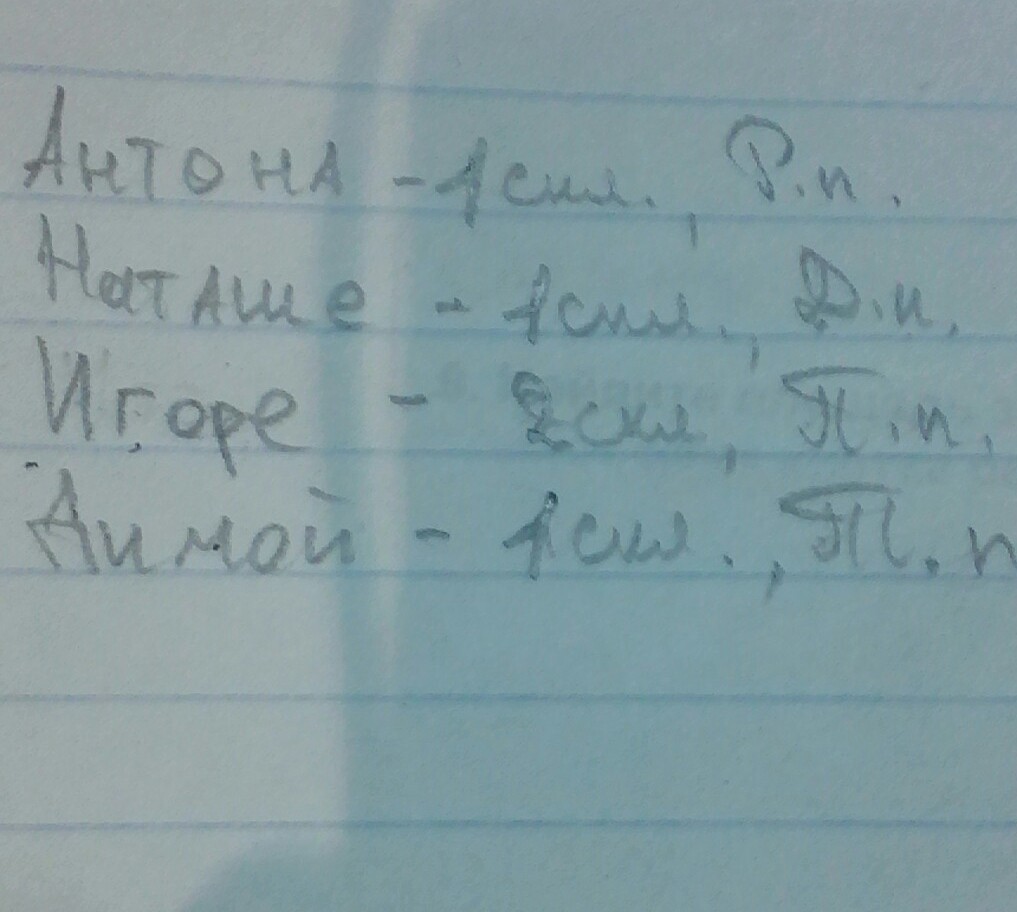 Антона - 1 скл., Р.п.
Наташе - 1 скл., Д.п.
Игоре - 2 скл, П.п.
Димой - 1 скл., Т.п